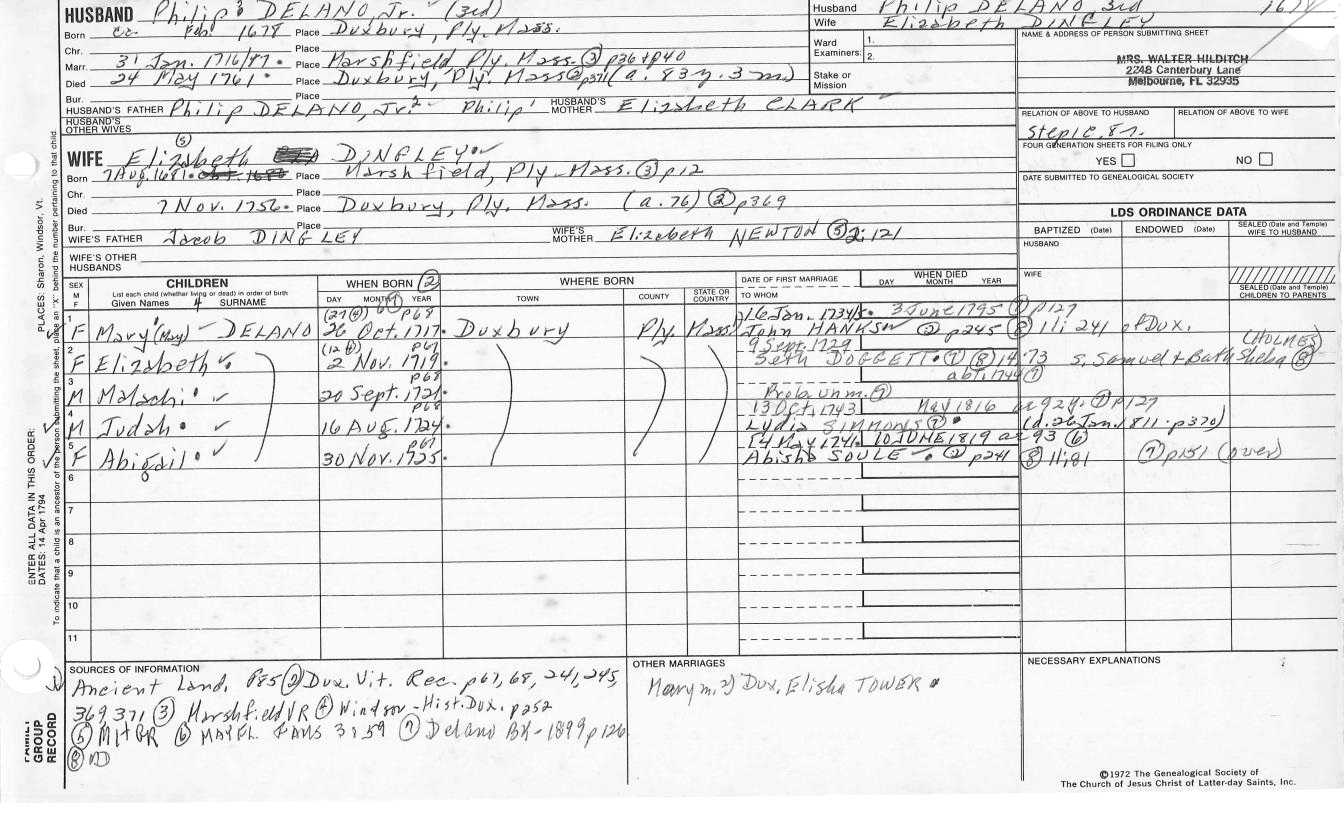 HUSBAND Philip³ DELANO, Jr. (3rd)
Husband Philip DELANO 3rd 1678
Wife Elizabeth DINGLEY
Born ca. Feb. 1678 Place Duxbury, Ply. Mass.
Chr. Place
Marr. 31 Jan. 1716/17. Place Marshfield Ply. Mass. ③ p36 + p40
Died 24 May 1761. Place Duxbury, Ply. Mass ② p371 (a. 83 y. 3 m)
Bur. Place
Ward Examiners: 1.
2.
Stake or Mission
NAME & ADDRESS OF PERSON SUBMITTING SHEET
MRS. WALTER HILDITCH
2248 Canterbury Lane
Melbourne, FL 32935
HUSBAND'S FATHER Philip DELANO, Jr.² Philip¹ HUSBAND'S MOTHER Elizabeth CLARK
HUSBAND'S OTHER WIVES
RELATION OF ABOVE TO HUSBAND
RELATION OF ABOVE TO WIFE
FOUR GENERATION SHEETS FOR FILING ONLY
YES NO
DATE SUBMITTED TO GENEALOGICAL SOCIETY
(5)
WIFE Elizabeth DINGLEY
Born 7 Aug. 1681. Place Marshfield, Ply. Mass. ③ p12
Chr. Place
Died 7 Nov. 1756. Place Duxbury, Ply. Mass. (a. 76) ② p369
Bur. Place
WIFE'S FATHER Jacob DINGLEY WIFE'S MOTHER Elizabeth NEWTON ⑤ 2:121
WIFE'S OTHER HUSBANDS
LDS ORDINANCE DATA
BAPTIZED (Date) ENDOWED (Date) SEALED (Date and Temple) WIFE TO HUSBAND
HUSBAND
WIFE
SEALED (Date and Temple) CHILDREN TO PARENTS
SEX M F
CHILDREN
List each child (whether living or dead) in order of birth
Given Names SURNAME
WHEN BORN ②
DAY MONTH YEAR
WHERE BORN
TOWN COUNTY STATE OR COUNTRY
DATE OF FIRST MARRIAGE
TO WHOM
WHEN DIED
DAY MONTH YEAR
(27 ④) p68 16 Jan. 1734/5. 3 June 1795 ⑦ p127
1 F Mary (May) DELANO 26 Oct. 1717. Duxbury Ply. Mass John HANKS ② p245 ⑧ 11:241 of Dux.
(12 ④) p67 9 Sept. 1729 (HOLMES)
2 F Elizabeth 2 Nov. 1719. Seth DOGGETT. ⑦ ⑧ 14:73 s. Samuel + Bathsheba ⑧
p68 abt. 1744 ⑦
3 M Malachi. 20 Sept. 1721. Prob. unm. ⑦
p68 13 Oct. 1743 May 1816 ae 92 y. ⑦ p127
4 M Judah. 16 Aug. 1724. Lydia SIMMONS ⑦. (d. 26 Jan. 1811 - p370)
p67 14 May 1741. 10 JUNE 1819 ae 93 ⑥
5 F Abigail. 30 Nov. 1725. Abisha SOULE. ② p241 ⑧ 11:81 ⑦ p151 (over)
6
7
8
9
10
11
ENTER ALL DATA IN THIS ORDER:
DATES: 14 Apr 1794 PLACES: Sharon, Windsor, Vt.
To indicate that a child is an ancestor of the person submitting the sheet, place an "X" behind the number pertaining to that child
FAMILY GROUP RECORD
SOURCES OF INFORMATION
Ancient Land. p85 ② Dux. Vit. Rec. p67, 68, 241, 245,
369, 371 ③ Marshfield VR ④ Windsor - Hist. Dux. p252
⑤ M[+]GR ⑥ MAYFL FAMS 3:59 ⑦ Delano BK - 1899 p126
⑧ MD
OTHER MARRIAGES
Mary m. 2) Dux. Elisha TOWER.
NECESSARY EXPLANATIONS
©1972 The Genealogical Society of
The Church of Jesus Christ of Latter-day Saints, Inc.